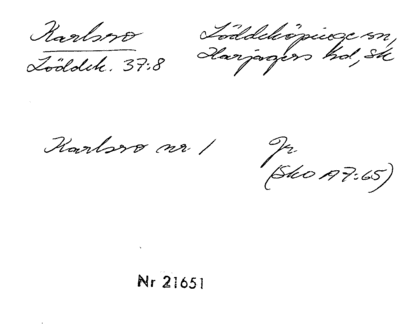 Karlsro Löddeköpinge sn,
Löddek. 37:8 Harjagers hd, Sk
Karlsro nr 1 Jr.
(SkO A7:65)
Nr 21651